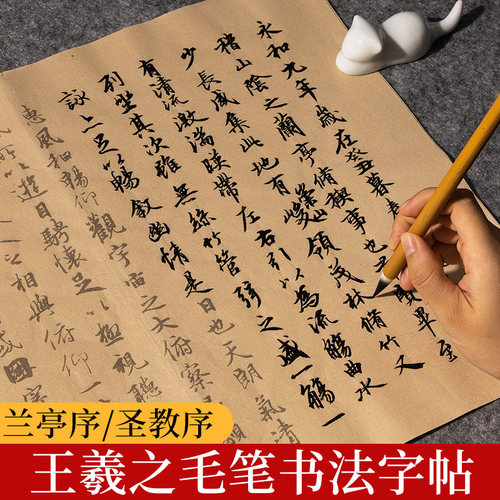 永和九年歲在癸暮春
稽山陰之蘭亭脩稧事也
賢畢至
少長咸集此地有峻領茂林脩竹又
有清流激湍暎帶左右引以為流觴曲水
列坐其次雖無絲竹管弦之盛一觴一
詠上足以暢敘幽情是日也天朗氣清
惠風和暢仰觀宇宙之大俯察
所以遊目騁懷足以極視聽
相與俯仰一
兰亭序/圣教序
王羲之毛笔书法字帖